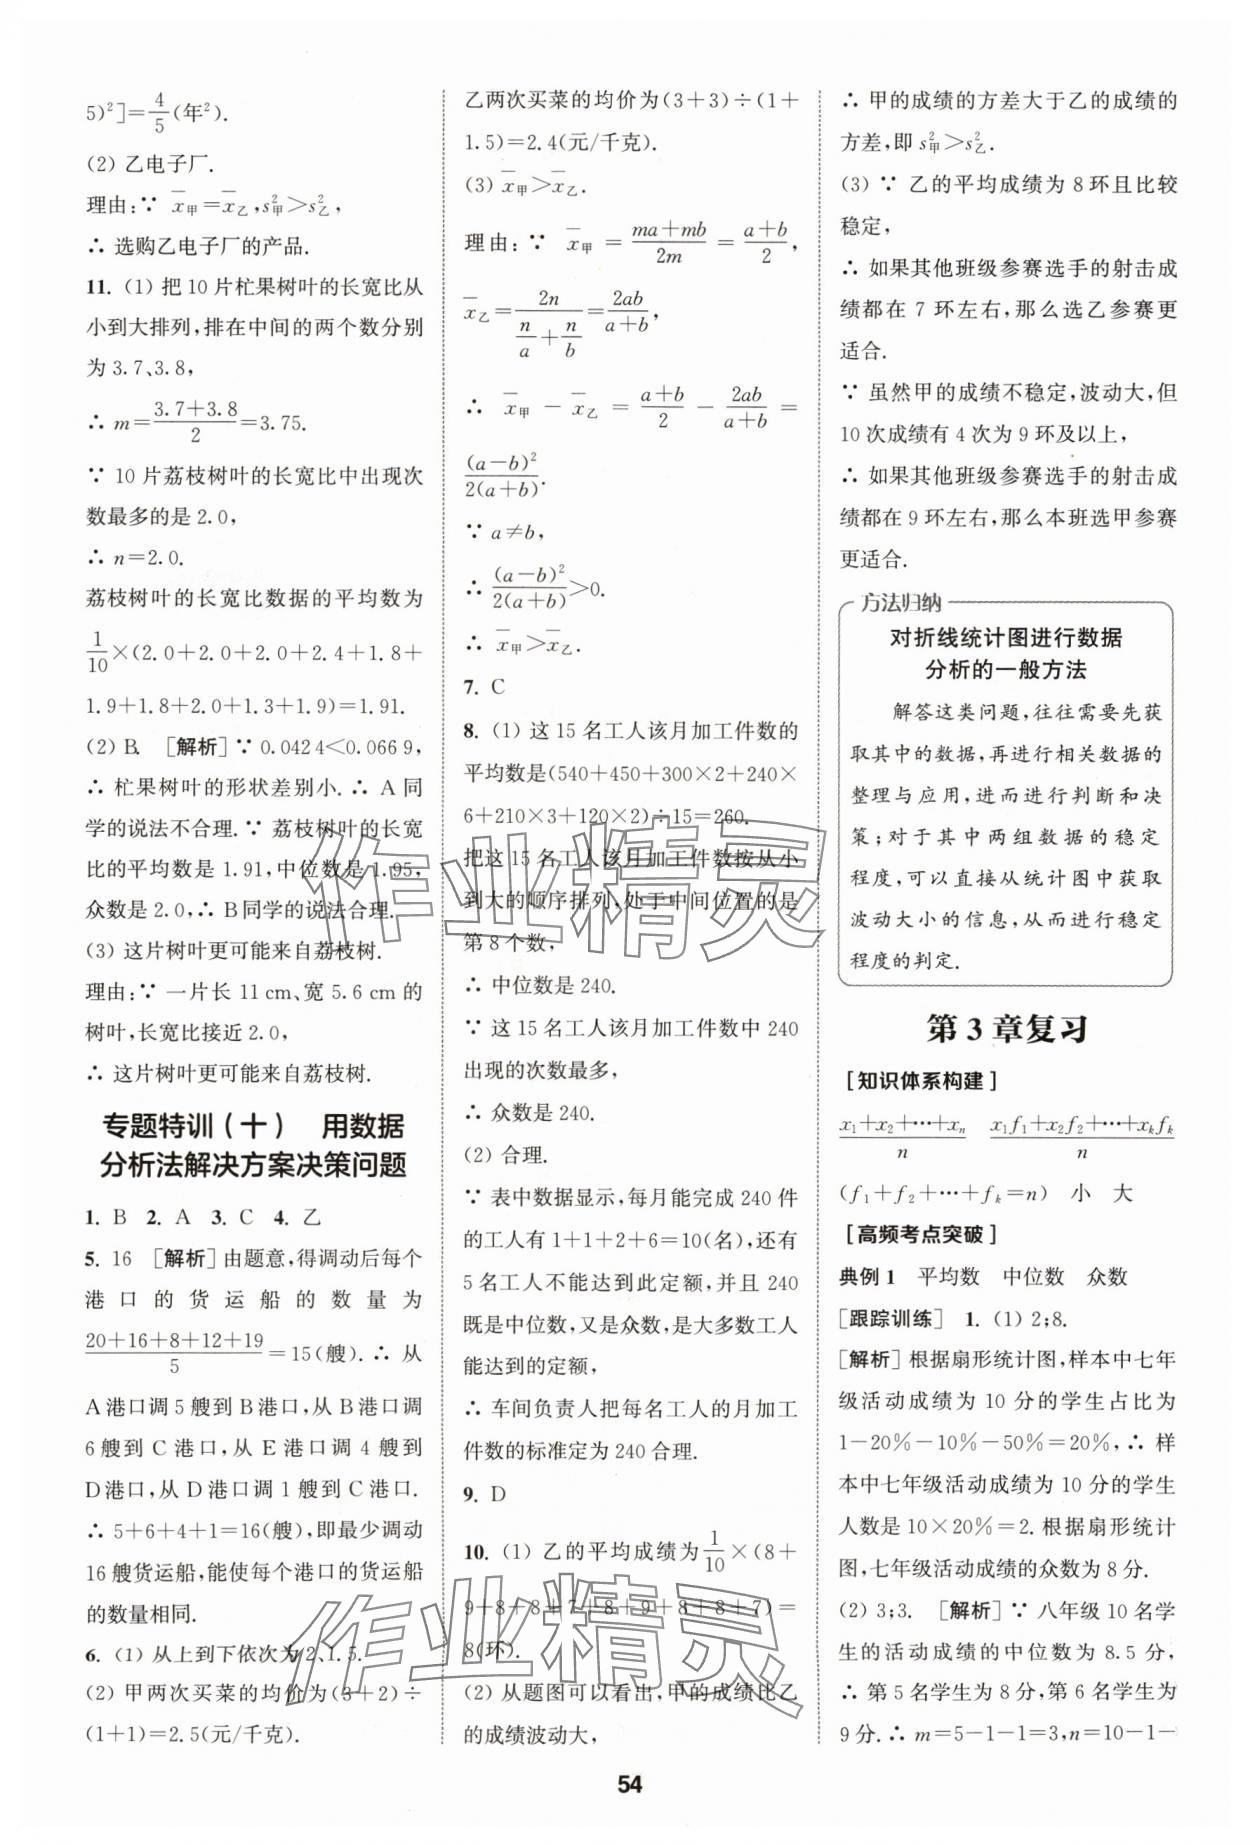 5)²]=4/5(年²).
(2) 乙电子厂.
理由:∵ x̄甲=x̄乙,s²甲>s²乙,
∴ 选购乙电子厂的产品.
11. (1) 把 10 片杧果树叶的长宽比从
小到大排列,排在中间的两个数分别
为 3.7、3.8,
∴ m=(3.7+3.8)/2=3.75.
∵ 10 片荔枝树叶的长宽比中出现次
数最多的是 2.0,
∴ n=2.0.
荔枝树叶的长宽比数据的平均数为
1/10×(2.0+2.0+2.0+2.4+1.8+
1.9+1.8+2.0+1.3+1.9)=1.91.
(2) B [解析]∵ 0.0424<0.0669,
∴ 杧果树叶的形状差别小. ∴ A 同
学的说法不合理.∵ 荔枝树叶的长宽
比的平均数是 1.91,中位数是 1.95,
众数是 2.0,∴ B同学的说法合理.
(3) 这片树叶更可能来自荔枝树.
理由:∵ 一片长 11 cm、宽 5.6 cm 的
树叶,长宽比接近 2.0,
∴ 这片树叶更可能来自荔枝树.
专题特训(十) 用数据
分析法解决方案决策问题
1. B 2. A 3. C 4. 乙
5. 16 [解析]由题意,得调动后每个
港口的货运船的数量为
(20+16+8+12+19)/5=15(艘). ∴ 从
A港口调 5 艘到 B港口,从 B港口调
6 艘到 C 港口,从 E 港口调 4 艘到
D港口,从 D 港口调 1 艘到 C港口.
∴ 5+6+4+1=16(艘),即最少调动
16 艘货运船,能使每个港口的货运船
的数量相同.
6. (1) 从上到下依次为2、1.5.
(2) 甲两次买菜的均价为(3+2)÷
(1+1)=2.5(元/千克).
乙两次买菜的均价为(3+3)÷(1+
1.5)=2.4(元/千克).
(3) x̄甲>x̄乙.
理由:∵ x̄甲=(ma+mb)/2m=(a+b)/2,
x̄乙=2n/(n/a+n/b)=2ab/(a+b),
∴ x̄甲－x̄乙=(a+b)/2－2ab/(a+b)=
(a－b)²/2(a+b).
∵ a≠b,
∴ (a－b)²/2(a+b)>0.
∴ x̄甲>x̄乙.
7. C
8. (1) 这 15 名工人该月加工件数的
平均数是(540+450+300×2+240×
6+210×3+120×2)÷15=260.
把这 15 名工人该月加工件数按从小
到大的顺序排列,处于中间位置的是
第 8 个数,
∴ 中位数是 240.
∵ 这 15 名工人该月加工件数中 240
出现的次数最多,
∴ 众数是 240.
(2) 合理.
∵ 表中数据显示,每月能完成 240 件
的工人有 1+1+2+6=10(名),还有
5 名工人不能达到此定额,并且 240
既是中位数,又是众数,是大多数工人
能达到的定额,
∴ 车间负责人把每名工人的月加工
件数的标准定为 240 合理.
9. D
10. (1) 乙的平均成绩为1/10×(8+
9+8+8+7+8+9+8+8+7)=
8(环).
(2) 从题图可以看出,甲的成绩比乙
的成绩波动大,
∴ 甲的成绩的方差大于乙的成绩的
方差,即 s²甲>s²乙.
(3) ∵ 乙的平均成绩为 8 环且比较
稳定,
∴ 如果其他班级参赛选手的射击成
绩都在 7 环左右,那么选乙参赛更
适合.
∵ 虽然甲的成绩不稳定,波动大,但
10 次成绩有 4 次为 9 环及以上,
∴ 如果其他班级参赛选手的射击成
绩都在 9 环左右,那么本班选甲参赛
更适合.
方法归纳
对折线统计图进行数据
分析的一般方法
解答这类问题,往往需要先获
取其中的数据,再进行相关数据的
整理与应用,进而进行判断和决
策;对于其中两组数据的稳定
程度,可以直接从统计图中获取
波动大小的信息,从而进行稳定
程度的判定.
第 3 章复习
[知识体系构建]
(x₁+x₂+⋯+xₙ)/n (x₁f₁+x₂f₂+⋯+xₖfₖ)/n
(f₁+f₂+⋯+fₖ=n) 小 大
[高频考点突破]
典例 1 平均数 中位数 众数
[跟踪训练] 1. (1) 2;8.
[解析]根据扇形统计图,样本中七年
级活动成绩为 10 分的学生占比为
1－20%－10%－50%=20%,∴ 样
本中七年级活动成绩为 10 分的学生
人数是 10×20%=2. 根据扇形统计
图,七年级活动成绩的众数为 8 分.
(2) 3;3. [解析]∵ 八年级 10 名学
生的活动成绩的中位数为 8.5 分,
∴ 第 5 名学生为 8 分,第 6 名学生为
9 分.∴ m=5－1－1=3,n=10－1－
54
作业精灵
作业精灵